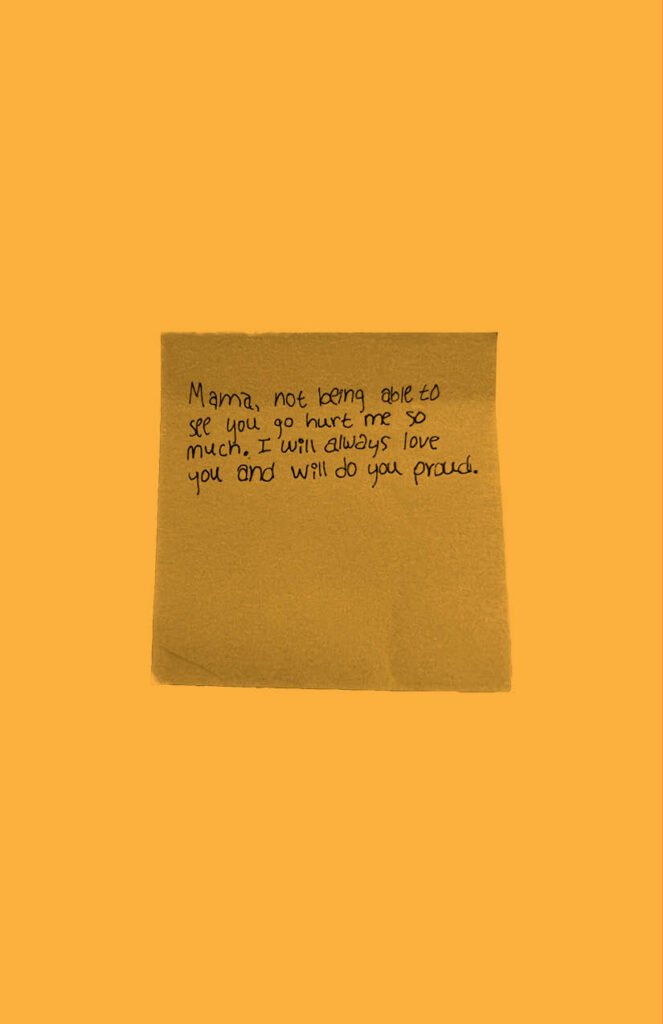 Mama, not being able to
see you go hurt me so
much. I will always love
you and will do you proud.